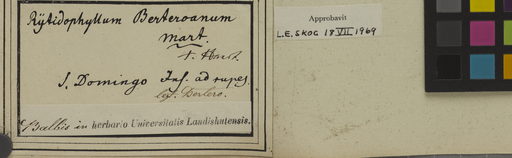 Rÿtidophyllum Berteroanum
Mart.
S. Domingo Ins. ad rupes
leg. Bertero.
Balbis in herbario Universitatis Landishutensis.
Approbavit
L.E. SKOG 18 VII 1969